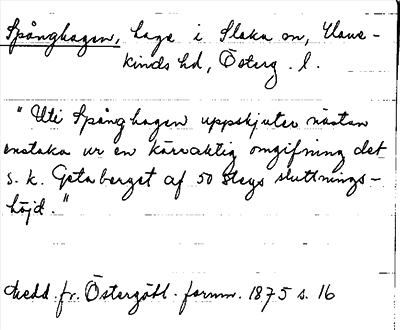 Spånghagen, hage i Slaka sn, Hane-
kinds hd, Österg. l.
"Uti Spånghagen uppskjuter nästan
enstaka ur en kärraktig omgifning det
s.k. Getaberget af 50 stegs sluttnings-
höjd."
Medd. fr. Östergötl. fornm. 1875 s. 16